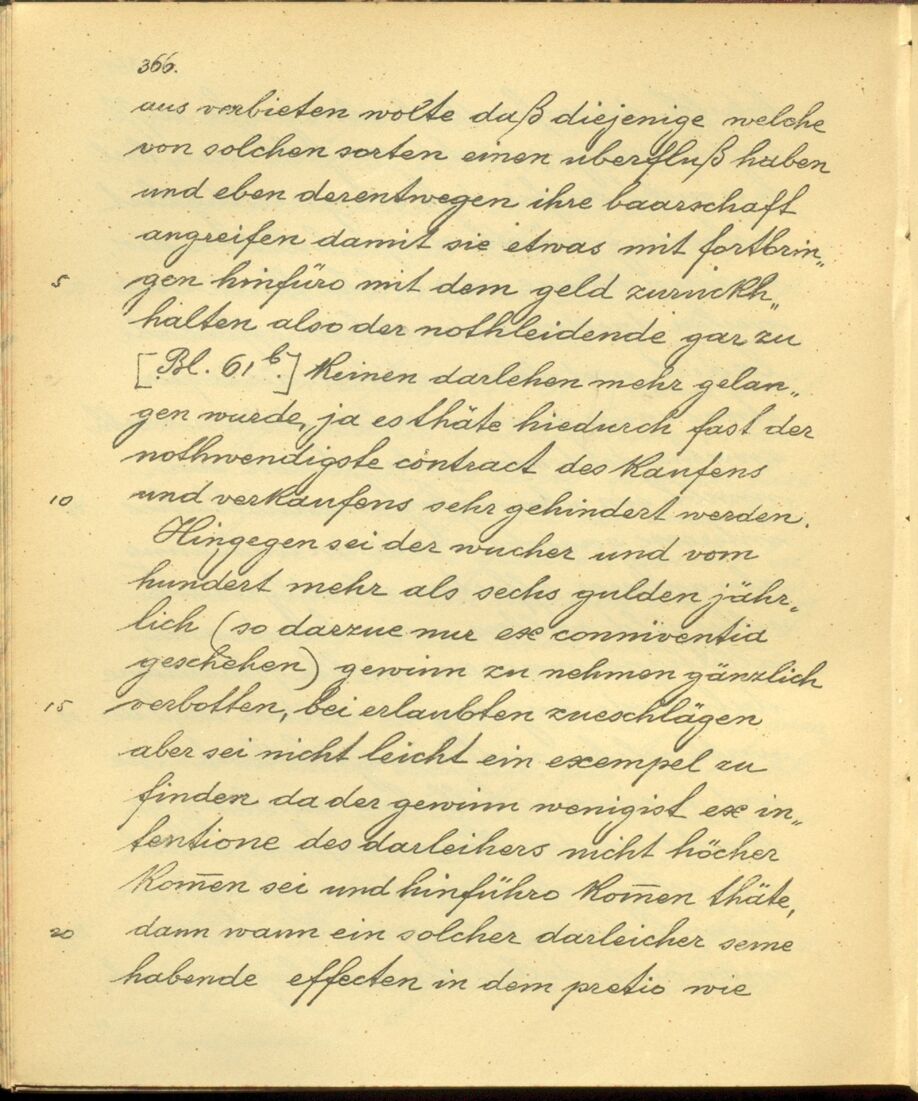 366.
aus verbieten wolte daß diejenige welche
von solchen sorten einen uberfluß haben
und eben derentwegen ihre baarschaft
angreifen damit sie etwas mit fortbrin„
5 gen hinfüro mit dem geld zurückh„
halten also der nothleidende gar zu
[Bl. 61b.] keinen darlehen mehr gelan„
gen wurde, ja es thäte hiedurch fast der
nothwendigste contract des kaufens
10 und verkaufens sehr gehindert werden.
Hingegen sei der wucher und vom
hundert mehr als sechs gulden jähr„
lich (so darzue nur ex conniventia
geschehen) gewinn zu nehmen gänzlich
15 verbotten, bei erlaubten zueschlägen
aber sei nicht leicht ein exempel zu
finden da der gewinn wenigist ex in„
tentione des darleihers nicht höcher
kom̅en sei und hinführo kom̅en thäte,
20 dann wann ein solcher darleicher seine
habende effecten in dem pretio wie